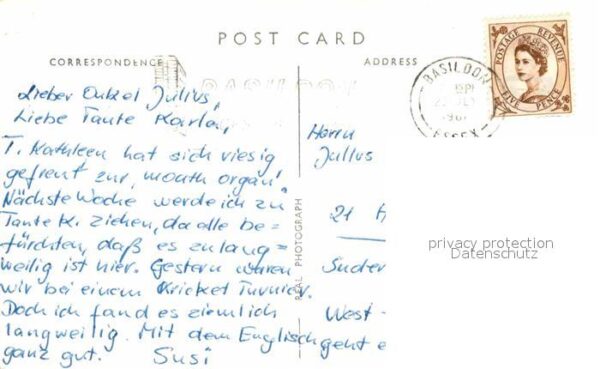 POST CARD
CORRESPONDENCE
ADDRESS
POSTAGE REVENUE
FIVE PENCE
BASILDON
ESSEX
Lieber Onkel Julius,
Liebe Tante Karla,
T. Kathleen hat sich riesig
gefreut zur „mouth organ“.
Nächste Woche werde ich zu
Tante K. ziehen, da alle be=
fürchten, daß es zu lang=
weilig ist hier. Gestern waren
wir bei einem Kricket Turnier.
Doch ich fand es ziemlich
langweilig. Mit dem Englisch geht e
ganz gut. Susi
REAL PHOTOGRAPH
Herrn
Julius
21 H
Suder
West-
privacy protection
Datenschutz